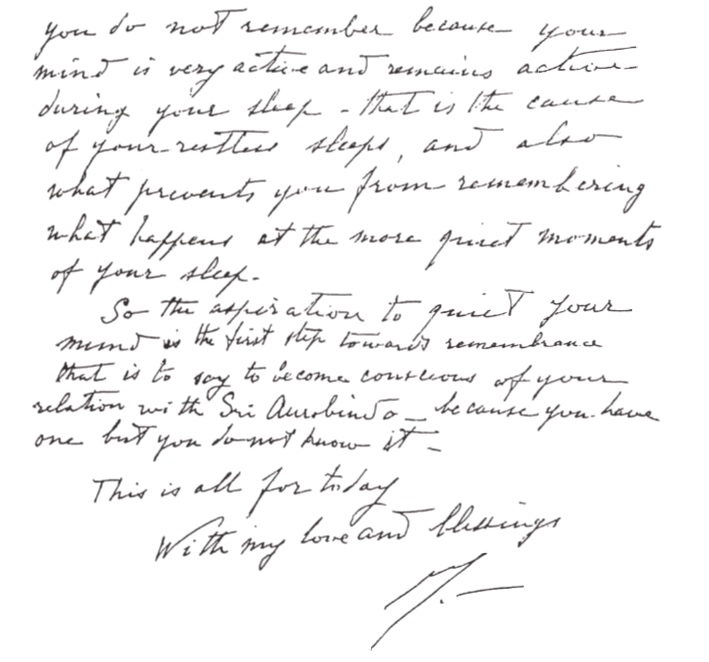 you do not remember because your
mind is very active and remains active
during your sleep - that is the cause
of your restless sleeps, and also
what prevents you from remembering
what happens at the more quiet moments
of your sleep.
So the aspiration to quiet your
mind is the first step towards remembrance
that is to say to become conscious of your
relation with Sri Aurobindo - because you have
one but you do not know it -
This is all for today
With my love and blessings
M. -